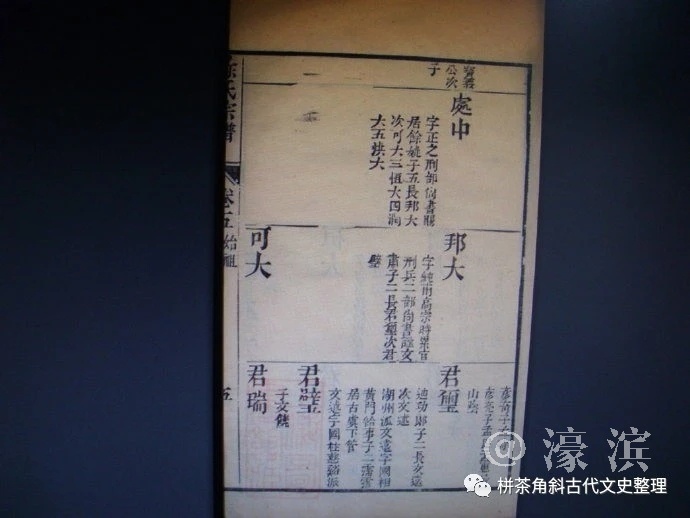 寶義
公次
子
處中
字正之刑部尚書賜
居餘姚子五長邦大
次可大三恒大四洞
大五拱大
邦大
字純甫高宗時累官
刑兵二部尚書諡文
肅子二長君璽次君
璧
可大
君璽
迪功郎子二長文迄
次文遠
湖州派文遠字國相
黄門給事子二霈霨
居古虞下管
文遠字國柱慈谿派
君璧
子文儀
君瑞
氏宗譜
卷五
始祖
五
@濠滨
栟茶角斜古代文史整理